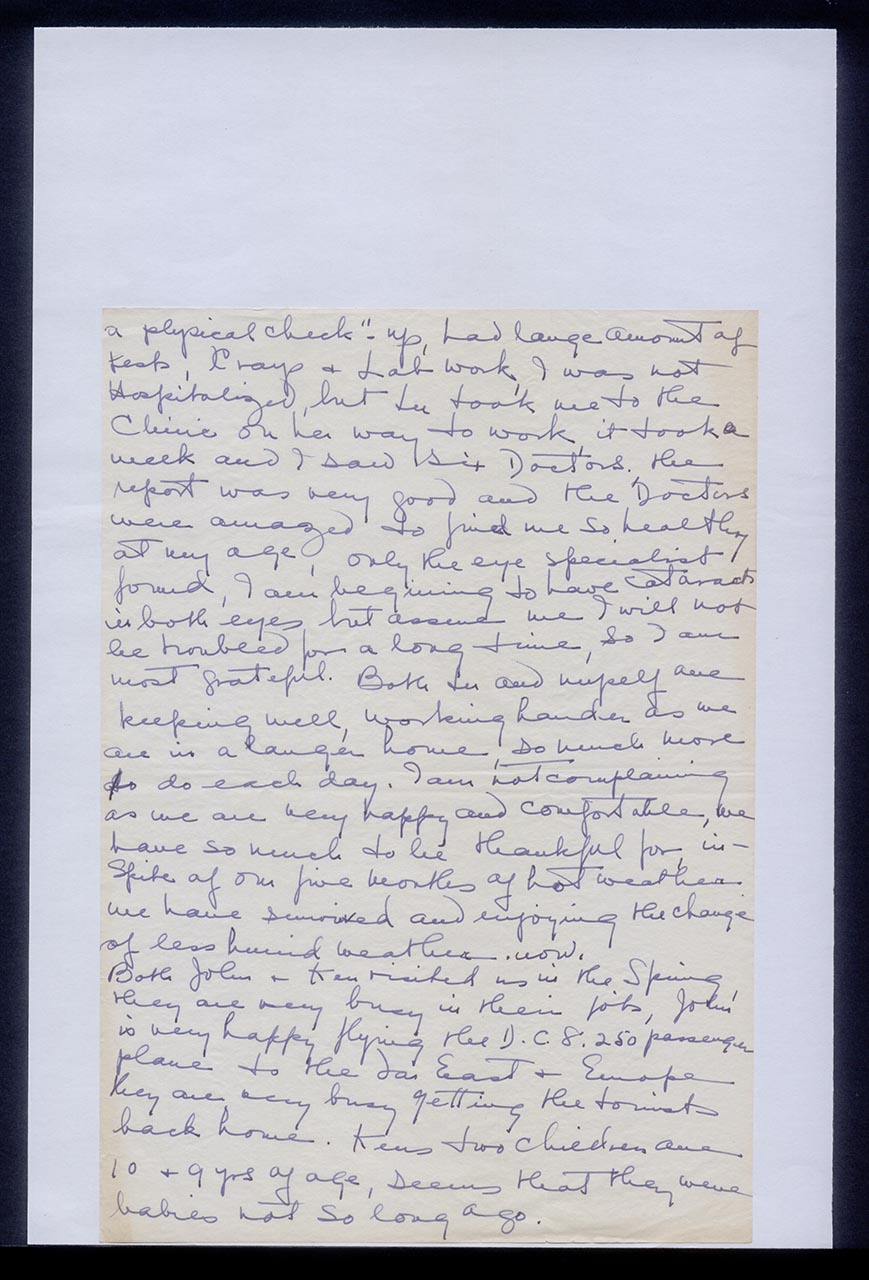 a physical check"-up, had large amount of
tests, Xrays + Lab work, I was not
Hospitalized, but Lu took me to the
Clinic on her way to work, it took a
week and I saw six Doctors, the
report was very good and the Doctors
were amazed to find me so healthy
at my age, only the eye specialist
found, I am begining to have cataracts
in both eyes but assure me I will not
be troubled for a long time, so I am
most grateful. Both Lu and myself are
keeping well, working harder as we
are in a larger home, so much more
to do each day. I am not complaining
as we are very happy and comfortable, we
have so much to be thankful for, in-
spite of our five months of hot weather
we have survived and enjoying the change
of less humid weather now.
Both John + Ken visited us in the Spring,
they are very busy in their jobs, John
is very happy flying the D.C. 8. 250 passenger
plane to the Far East + Europe
they are very busy getting the tourists
back home. Kens two children are
10 + 9 yrs of age, seems that they were
babies not so long ago.